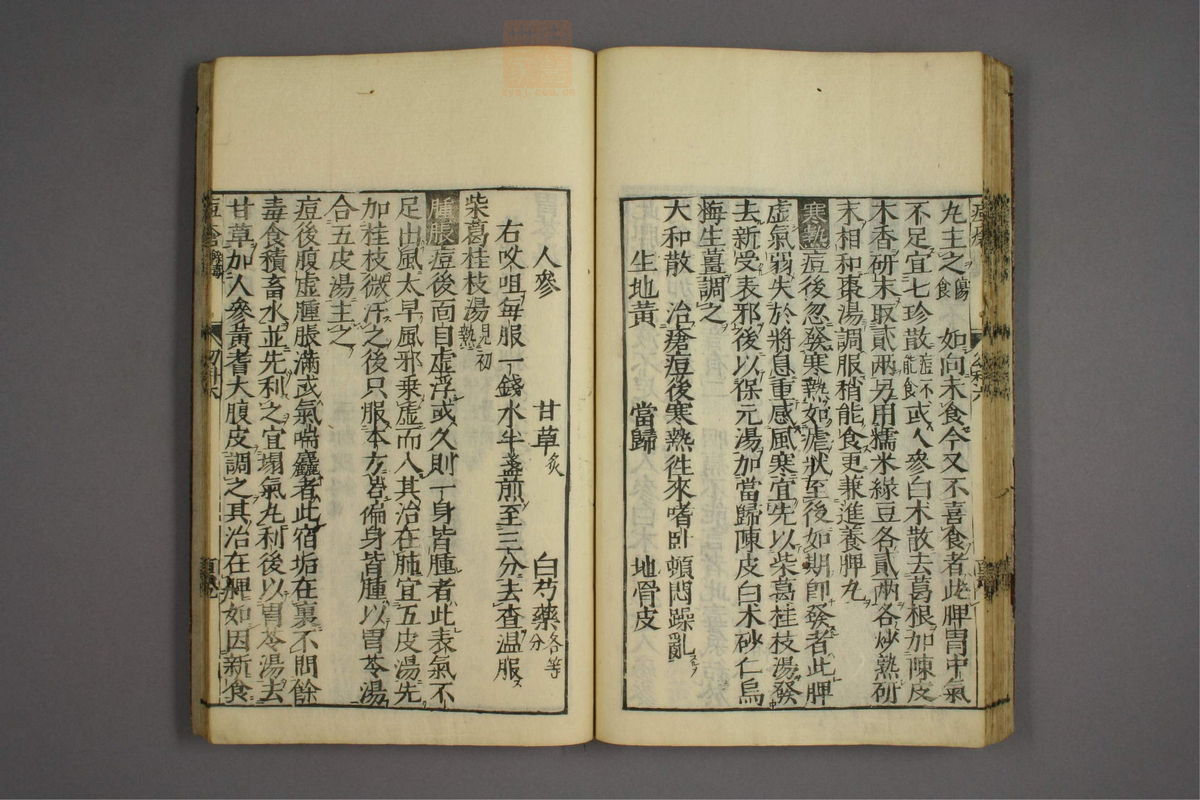 丸主之傷食 如向未食今又不喜食者此脾胃中氣
不足宜七珍散痘不能食或人參白朮散去葛根加陳皮
木香研末取貳兩另用糯米緑豆各貳兩各炒熟研
末相和棗湯調服稍能食更兼進養脾丸
寒熱痘後忽發寒熱如瘧狀至後如期即發者此脾
虚氣弱失於將息重感風寒宜先以柴葛桂枝湯發
去新受表邪後以保元湯加當歸陳皮白朮砂仁烏
梅生薑調之
大和散 治瘡痘後寒熱徃來嗜卧煩悶躁亂
生地黄 當歸 地骨皮
人參 甘草炙 白芍藥各等分
右㕮咀每服一錢水半盞煎至三分去査温服
柴葛桂枝湯見初熱
腫脹痘後面目虚浮或久則一身皆腫者此表氣不
足出風太早風邪乗虚而入其治在肺宜五皮湯先
加桂枝微汗之後只服本方若徧身皆腫以胃苓湯
合五皮湯主之
痘後腹虚腫脹滿或氣喘麤者此宿垢在裏不問餘
毒食積畜水並先利之宜塌氣丸利後以胃苓湯去
甘草加人參黄耆大腹皮調之其治在脾如因新食
痘疹